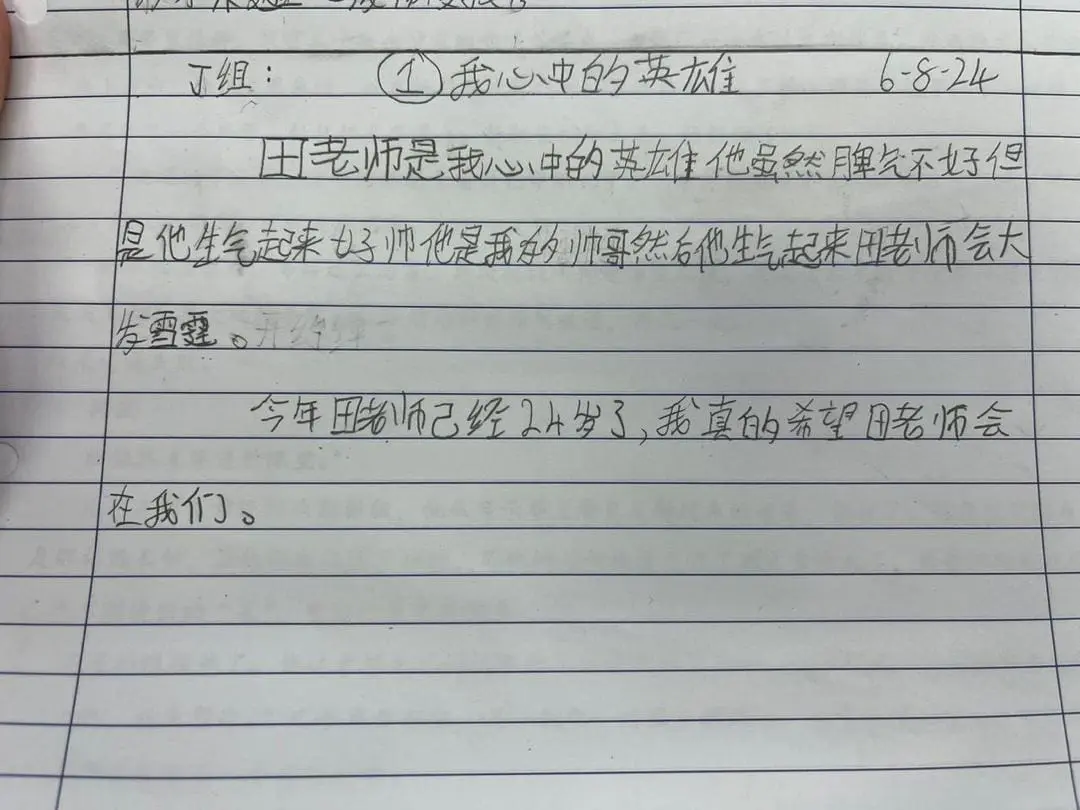 J组： ① 我心中的英雄 6-8-24
田老师是我心中的英雄他虽然脾气不好但
是他生气起来好帅他是我的帅哥然后他生气起来田老师会大
发雪霆。
今年田老师已经24岁了，我真的希望田老师会
在我们。